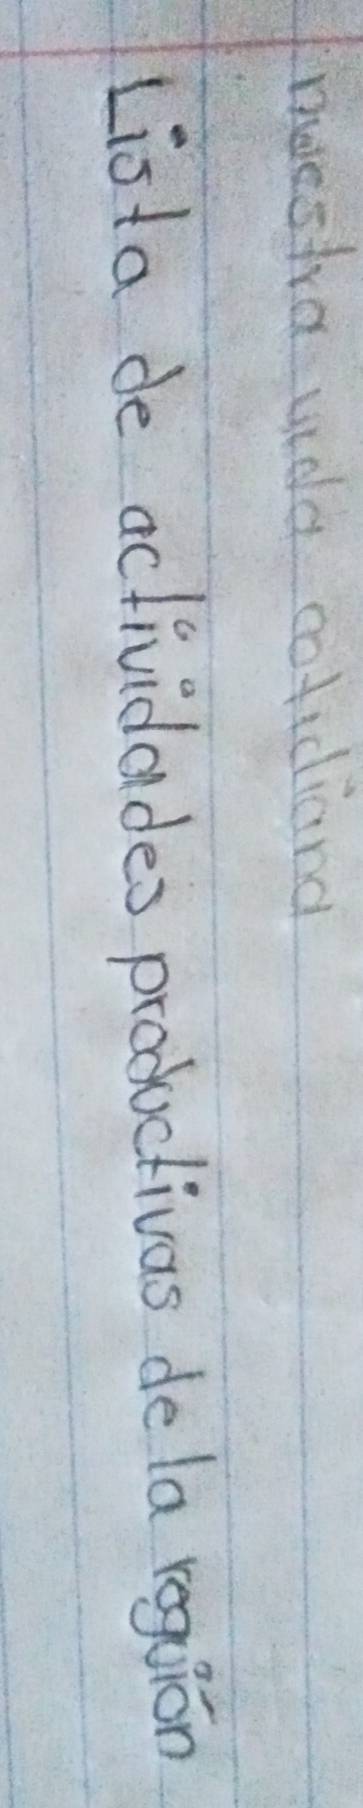 nuestra vida cotidiana
Lista de actividades productivas de la reguión